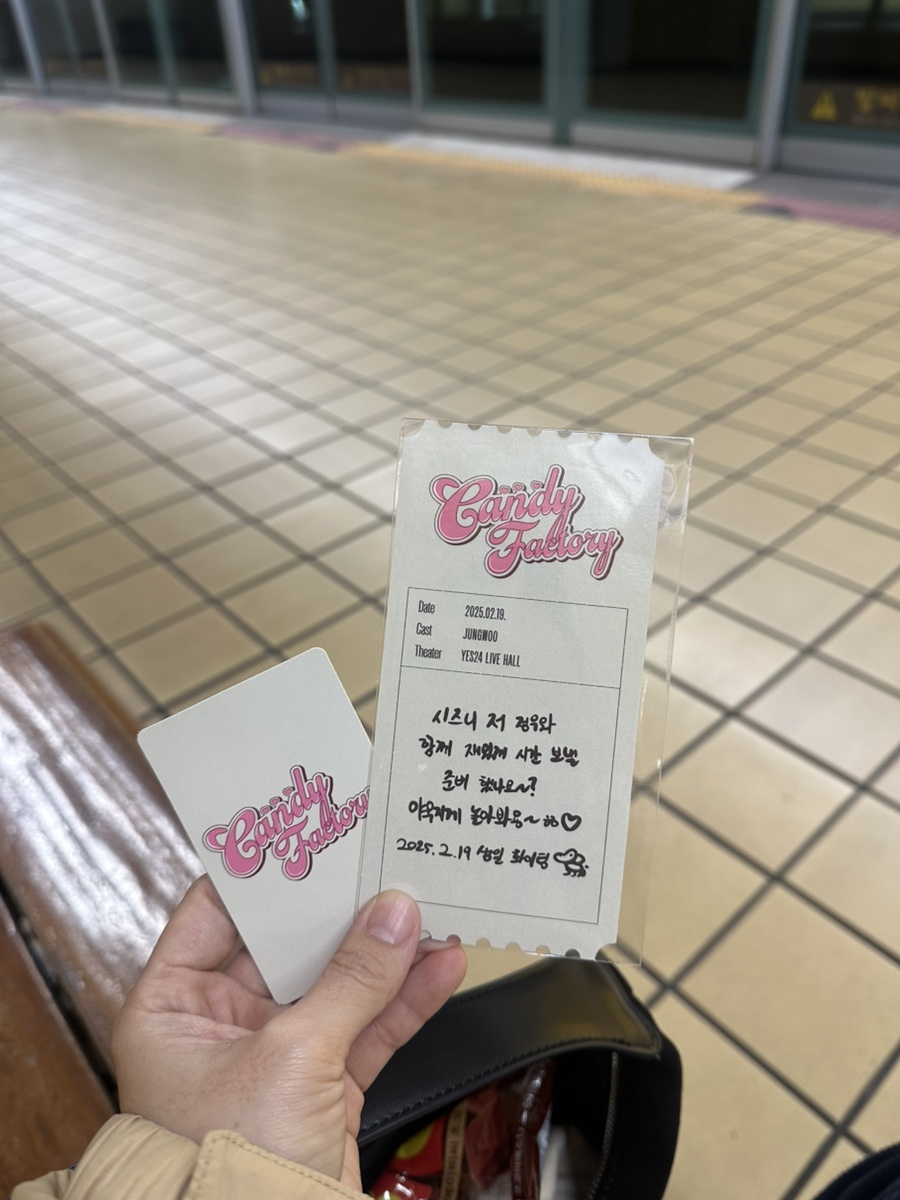 Candy
Factory
Date 2025.02.19.
Cast JUNGWOO
Theater YES24 LIVE HALL
시즈니 저 정우와
함께 재밌게 시간 보낼
준비 됐나요~?
야무지게 놀아봐용~ㅎㅎ♡
2025.2.19 생일 화이팅
Candy
Factory